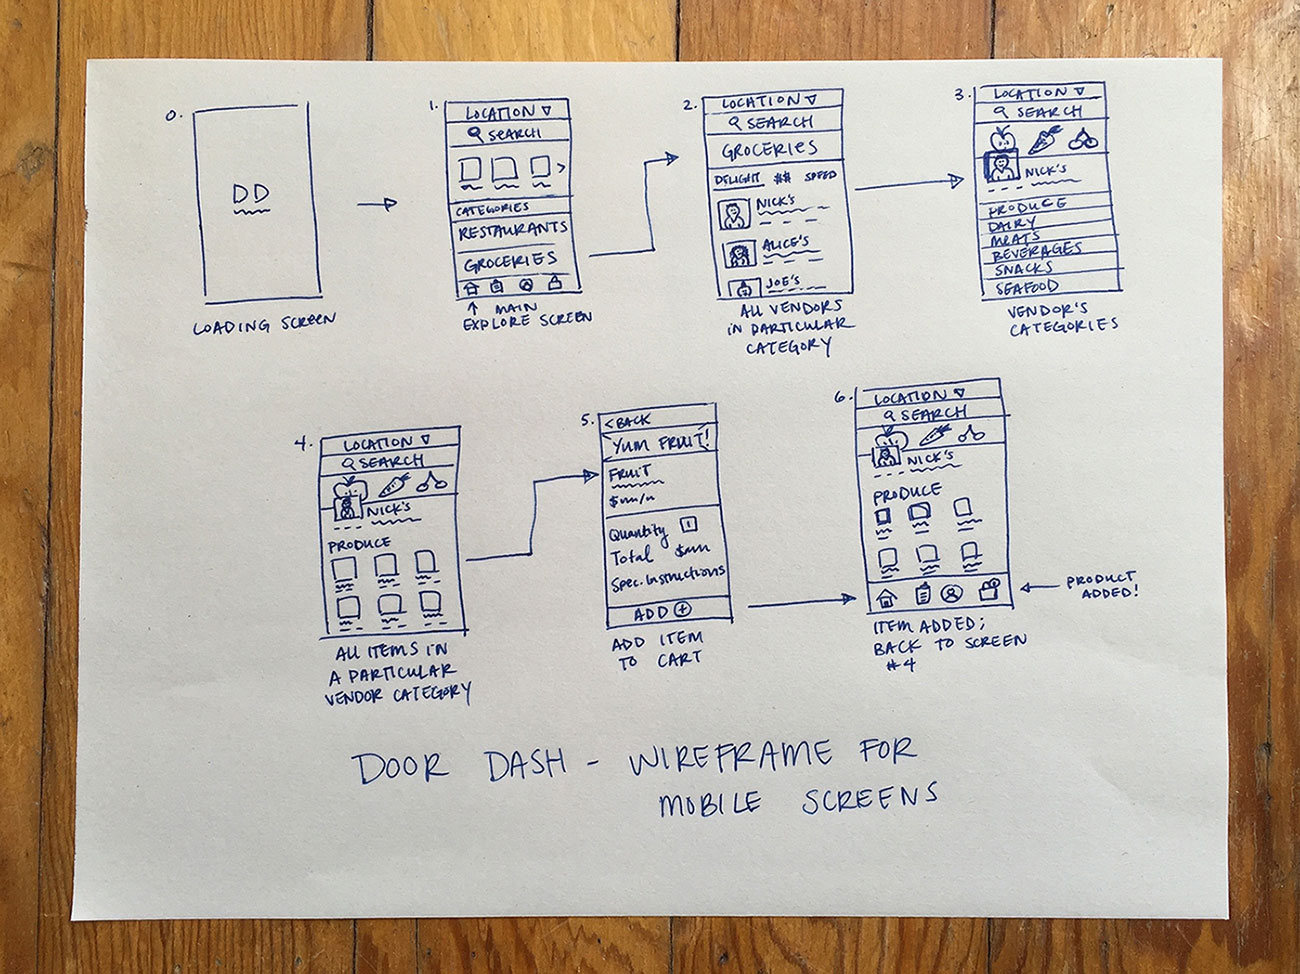 0.
DD
LOADING SCREEN
1.
LOCATION
SEARCH
CATEGORIES
RESTAURANTS
GROCERIES
MAIN
EXPLORE SCREEN
2.
LOCATION
SEARCH
GROCERIES
DELIGHT $$ SPEED
NICK'S
ALICE'S
JOE'S
ALL VENDORS
IN PARTICULAR
CATEGORY
3.
LOCATION
SEARCH
NICK'S
PRODUCE
DAIRY
MEATS
BEVERAGES
SNACKS
SEAFOOD
VENDOR'S
CATEGORIES
4.
LOCATION
SEARCH
NICK'S
PRODUCE
ALL ITEMS IN
A PARTICULAR
VENDOR CATEGORY
5.
< BACK
YUM FRUIT!
FRUIT
$
Quantity 1
Total $
Spec. Instructions
ADD +
ADD ITEM
TO CART
6.
LOCATION
SEARCH
NICK'S
PRODUCE
PRODUCT
ADDED!
ITEM ADDED;
BACK TO SCREEN
#4
DOOR DASH - WIREFRAME FOR
MOBILE SCREENS